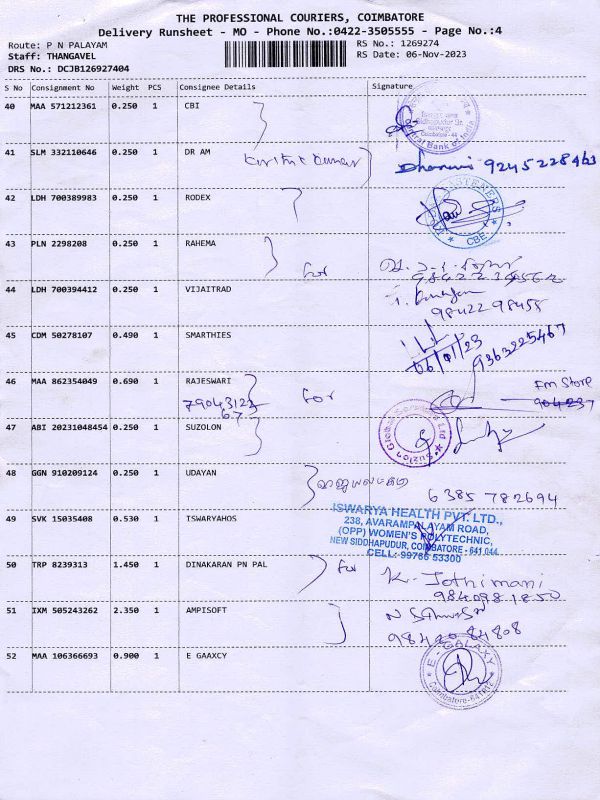 THE PROFESSIONAL COURIERS, COIMBATORE
Delivery Runsheet - MO - Phone No.:0422-3505555 - Page No.:4
Route: P N PALAYAM RS No.: 1269274
Staff: THANGAVEL RS Date: 06-Nov-2023
DRS No.: DCJB126927404
S No Consignment No Weight PCS Consignee Details Signature
40 MAA 571212361 0.250 1 CBI
Central Bank of India
41 SLM 332110646 0.250 1 DR AM
Dharani 9245228463
42 LDH 700389983 0.250 1 RODEX
FASTENERS
CBE
43 PLN 2298208 0.250 1 RAHEMA
for
44 LDH 700394412 0.250 1 VIJAITRAD
98422 98455
45 CDM 50278107 0.490 1 SMARTHIES
06/11/23 9363225467
46 MAA 862354049 0.690 1 RAJESWARI
for Fm Store
47 ABI 20231048454 0.250 1 SUZOLON
Suzlon Global Services Ltd
48 GGN 910209124 0.250 1 UDAYAN
6385 782694
49 SVK 15035408 0.530 1 TSWARYAHOS
ISWARYA HEALTH PVT. LTD.,
238, AVARAMPALAYAM ROAD,
(OPP) WOMEN'S POLYTECHNIC,
NEW SIDDHAPUDUR, COIMBATORE - 641 044.
CELL: 99766 53300
50 TRP 8239313 1.450 1 DINAKARAN PN PAL
for K. Jothimani
984098 1850
51 IXM 505243262 2.350 1 AMPISOFT
98420 84808
52 MAA 106366693 0.900 1 E GAAXCY
E - GALAXY